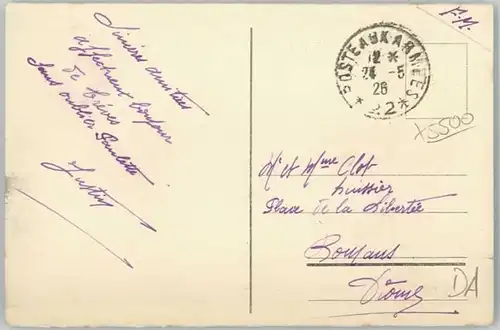 Sincères amitiés
affectueux bonjour
de Trèves
sans oublier Paulette
Justin
F.M.
POSTE AUX ARMEES
12 *
24 - 5
26
* 22 *
x5500
Mr et Mme Clot
huissier
Place de la Liberté
Romans
Drôme
DA